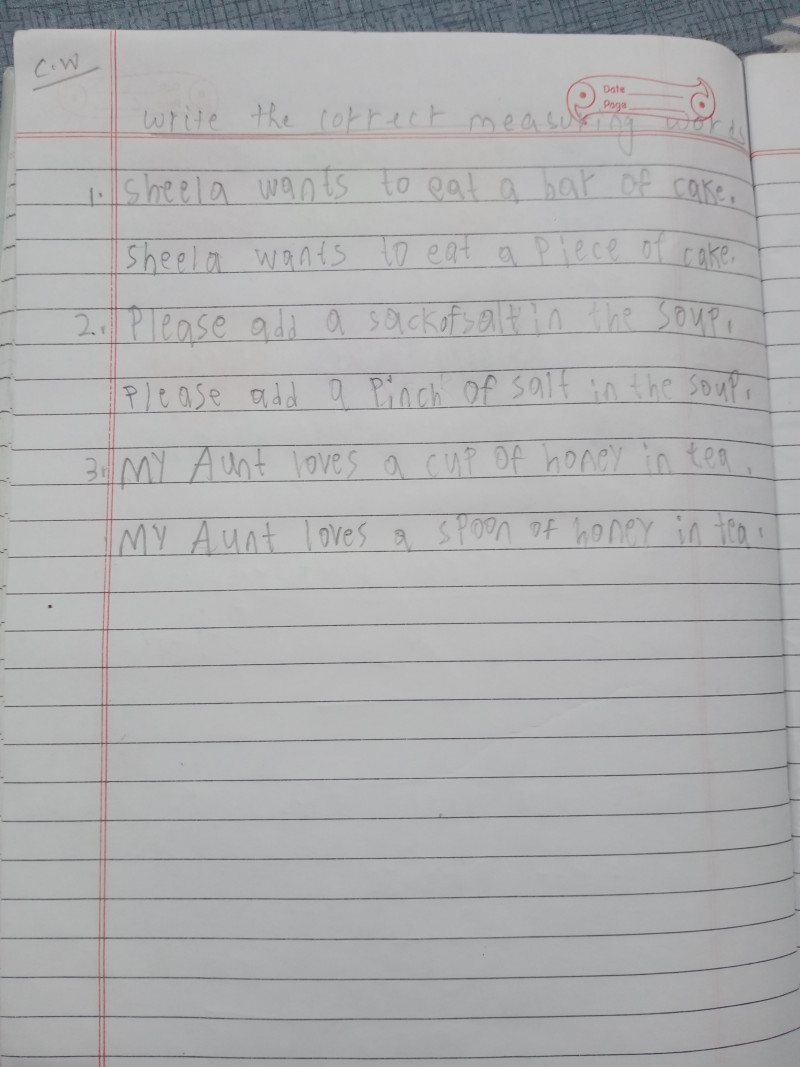 C.W
Date
Page
write the correct measuring words
1. Sheela wants to eat a bar of cake.
Sheela wants to eat a piece of cake.
2. Please add a sack of salt in the soup.
Please add a pinch of salt in the soup.
3. My Aunt loves a cup of honey in tea.
My Aunt loves a spoon of honey in tea.